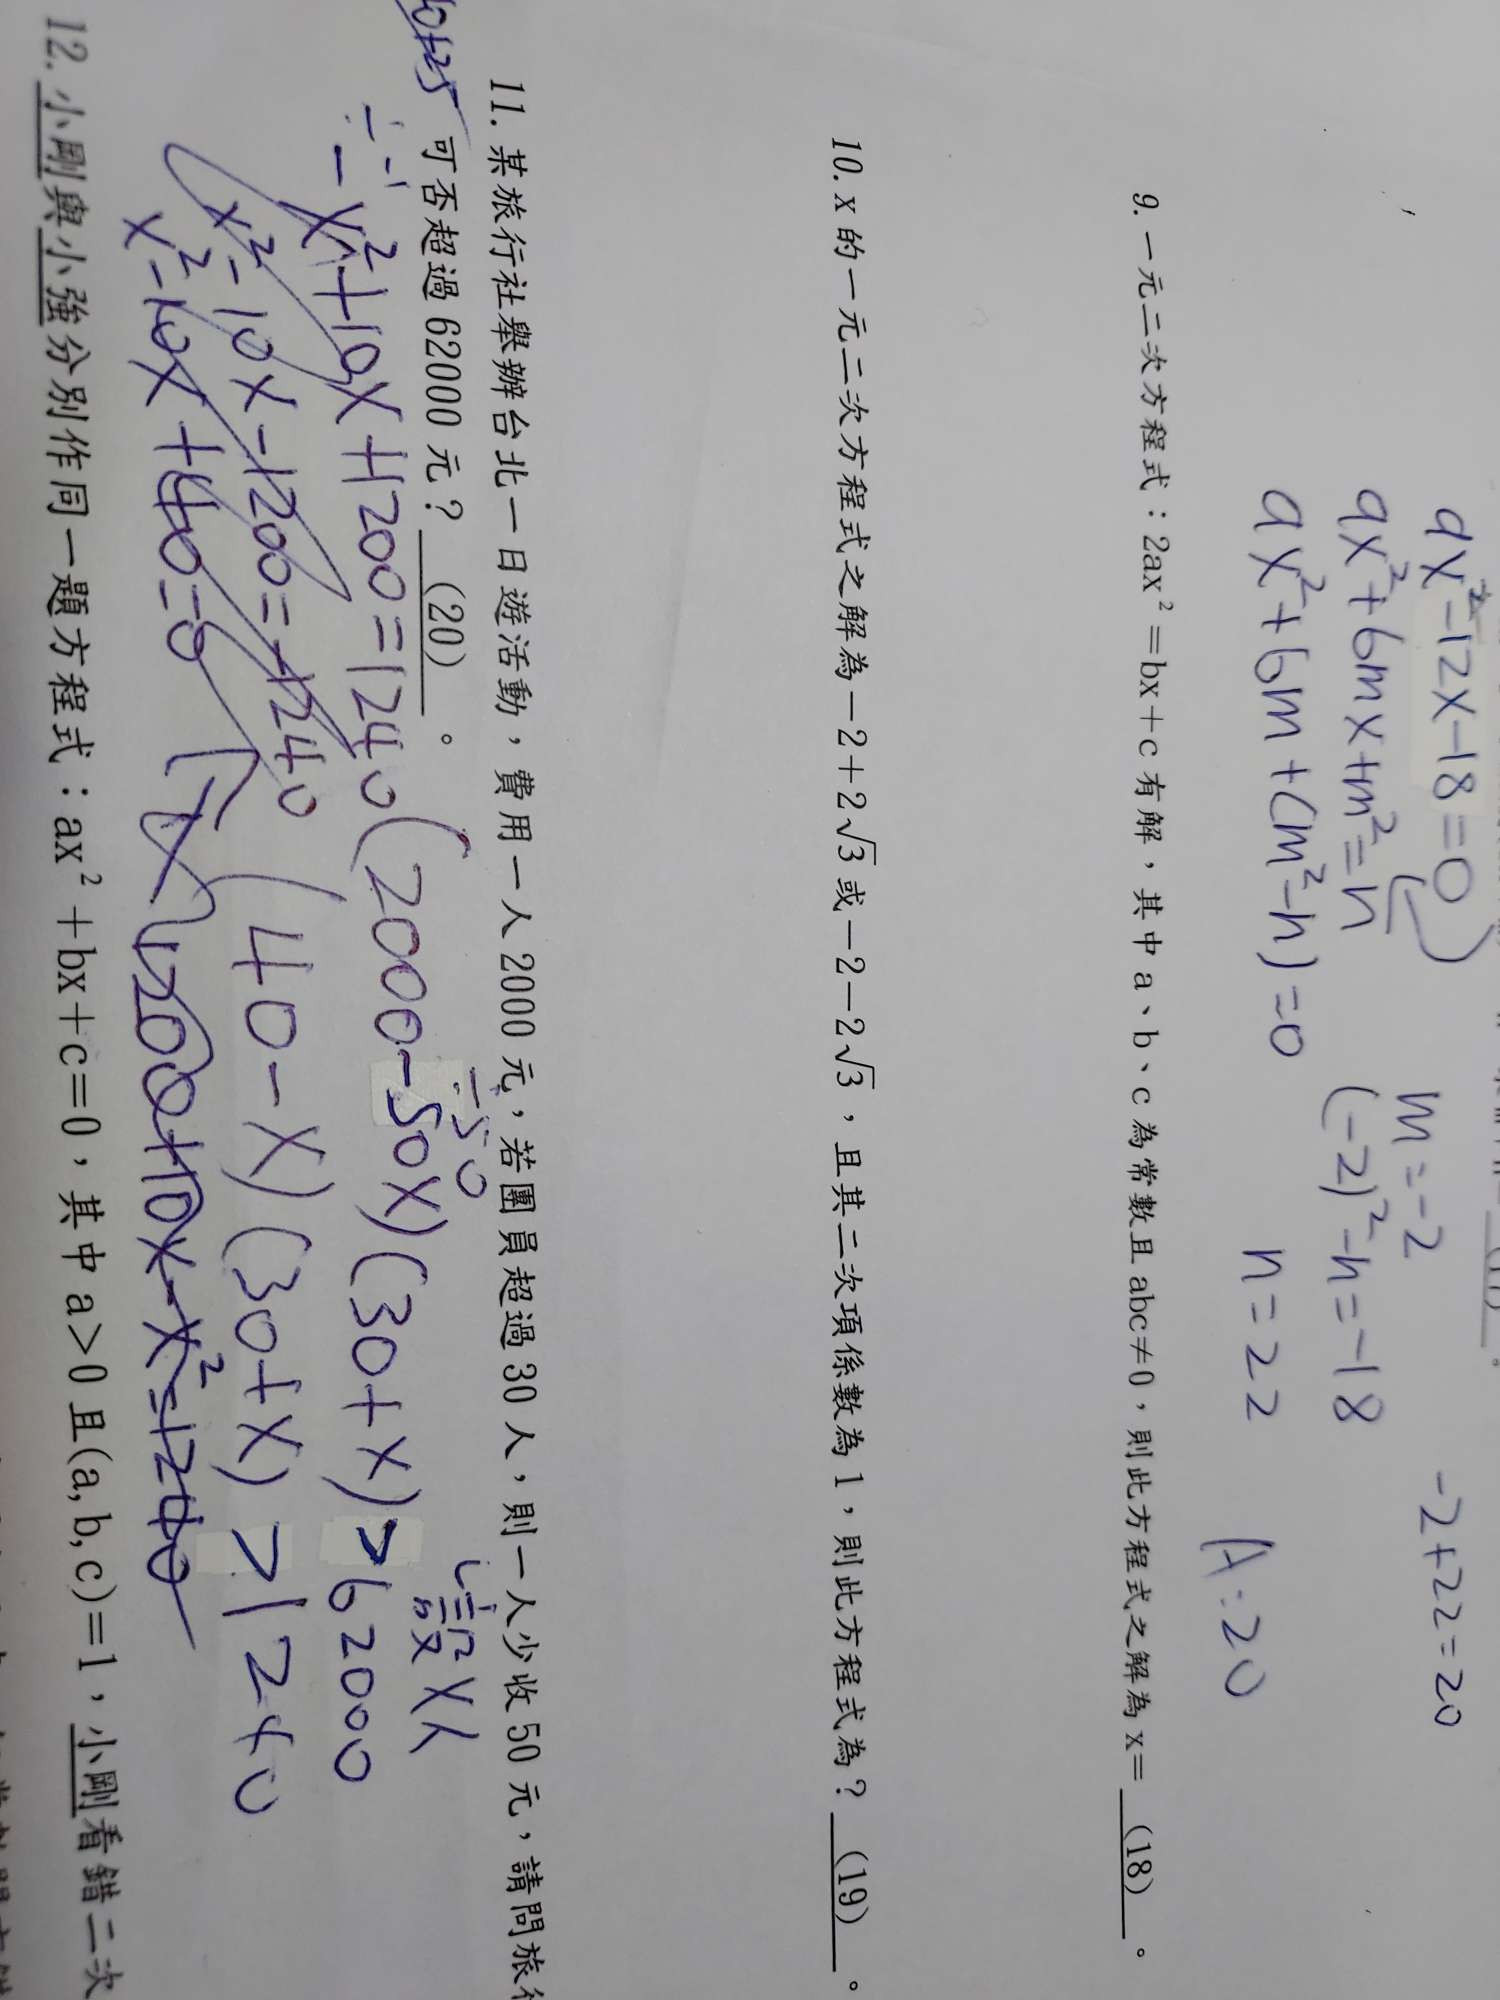 9x²-12x-18=0
9x²+6mx+m²=n
9x²+6m+(m²-n)=0
m=-2
(-2)²-n=-18
n=22
-2+22=20
A:20
9. 一元二次方程式：2ax²=bx+c 有解，其中 a、b、c 為常數且 abc≠0，則此方程式之解為 x=(18)。
10. x 的一元二次方程式之解為-2+2√3或-2-2√3，且其二次項係數為 1，則此方程式為？(19)。
11. 某旅行社舉辦台北一日遊活動，費用一人 2000 元，若團員超過 30 人，則一人少收 50 元，請問旅行
可否超過 62000 元？(20)。
-50
設 x人
(2000-50x)(30+x)>62000
(40-x)(30+x)>1240
-x²+10x+1200=1240
x²-10x-1200=-1240
x²-10x+40=0
1200+10x-x²=1240
12. 小剛與小強分別作同一題方程式：ax²+bx+c=0，其中 a>0 且(a,b,c)=1，小剛看錯二次